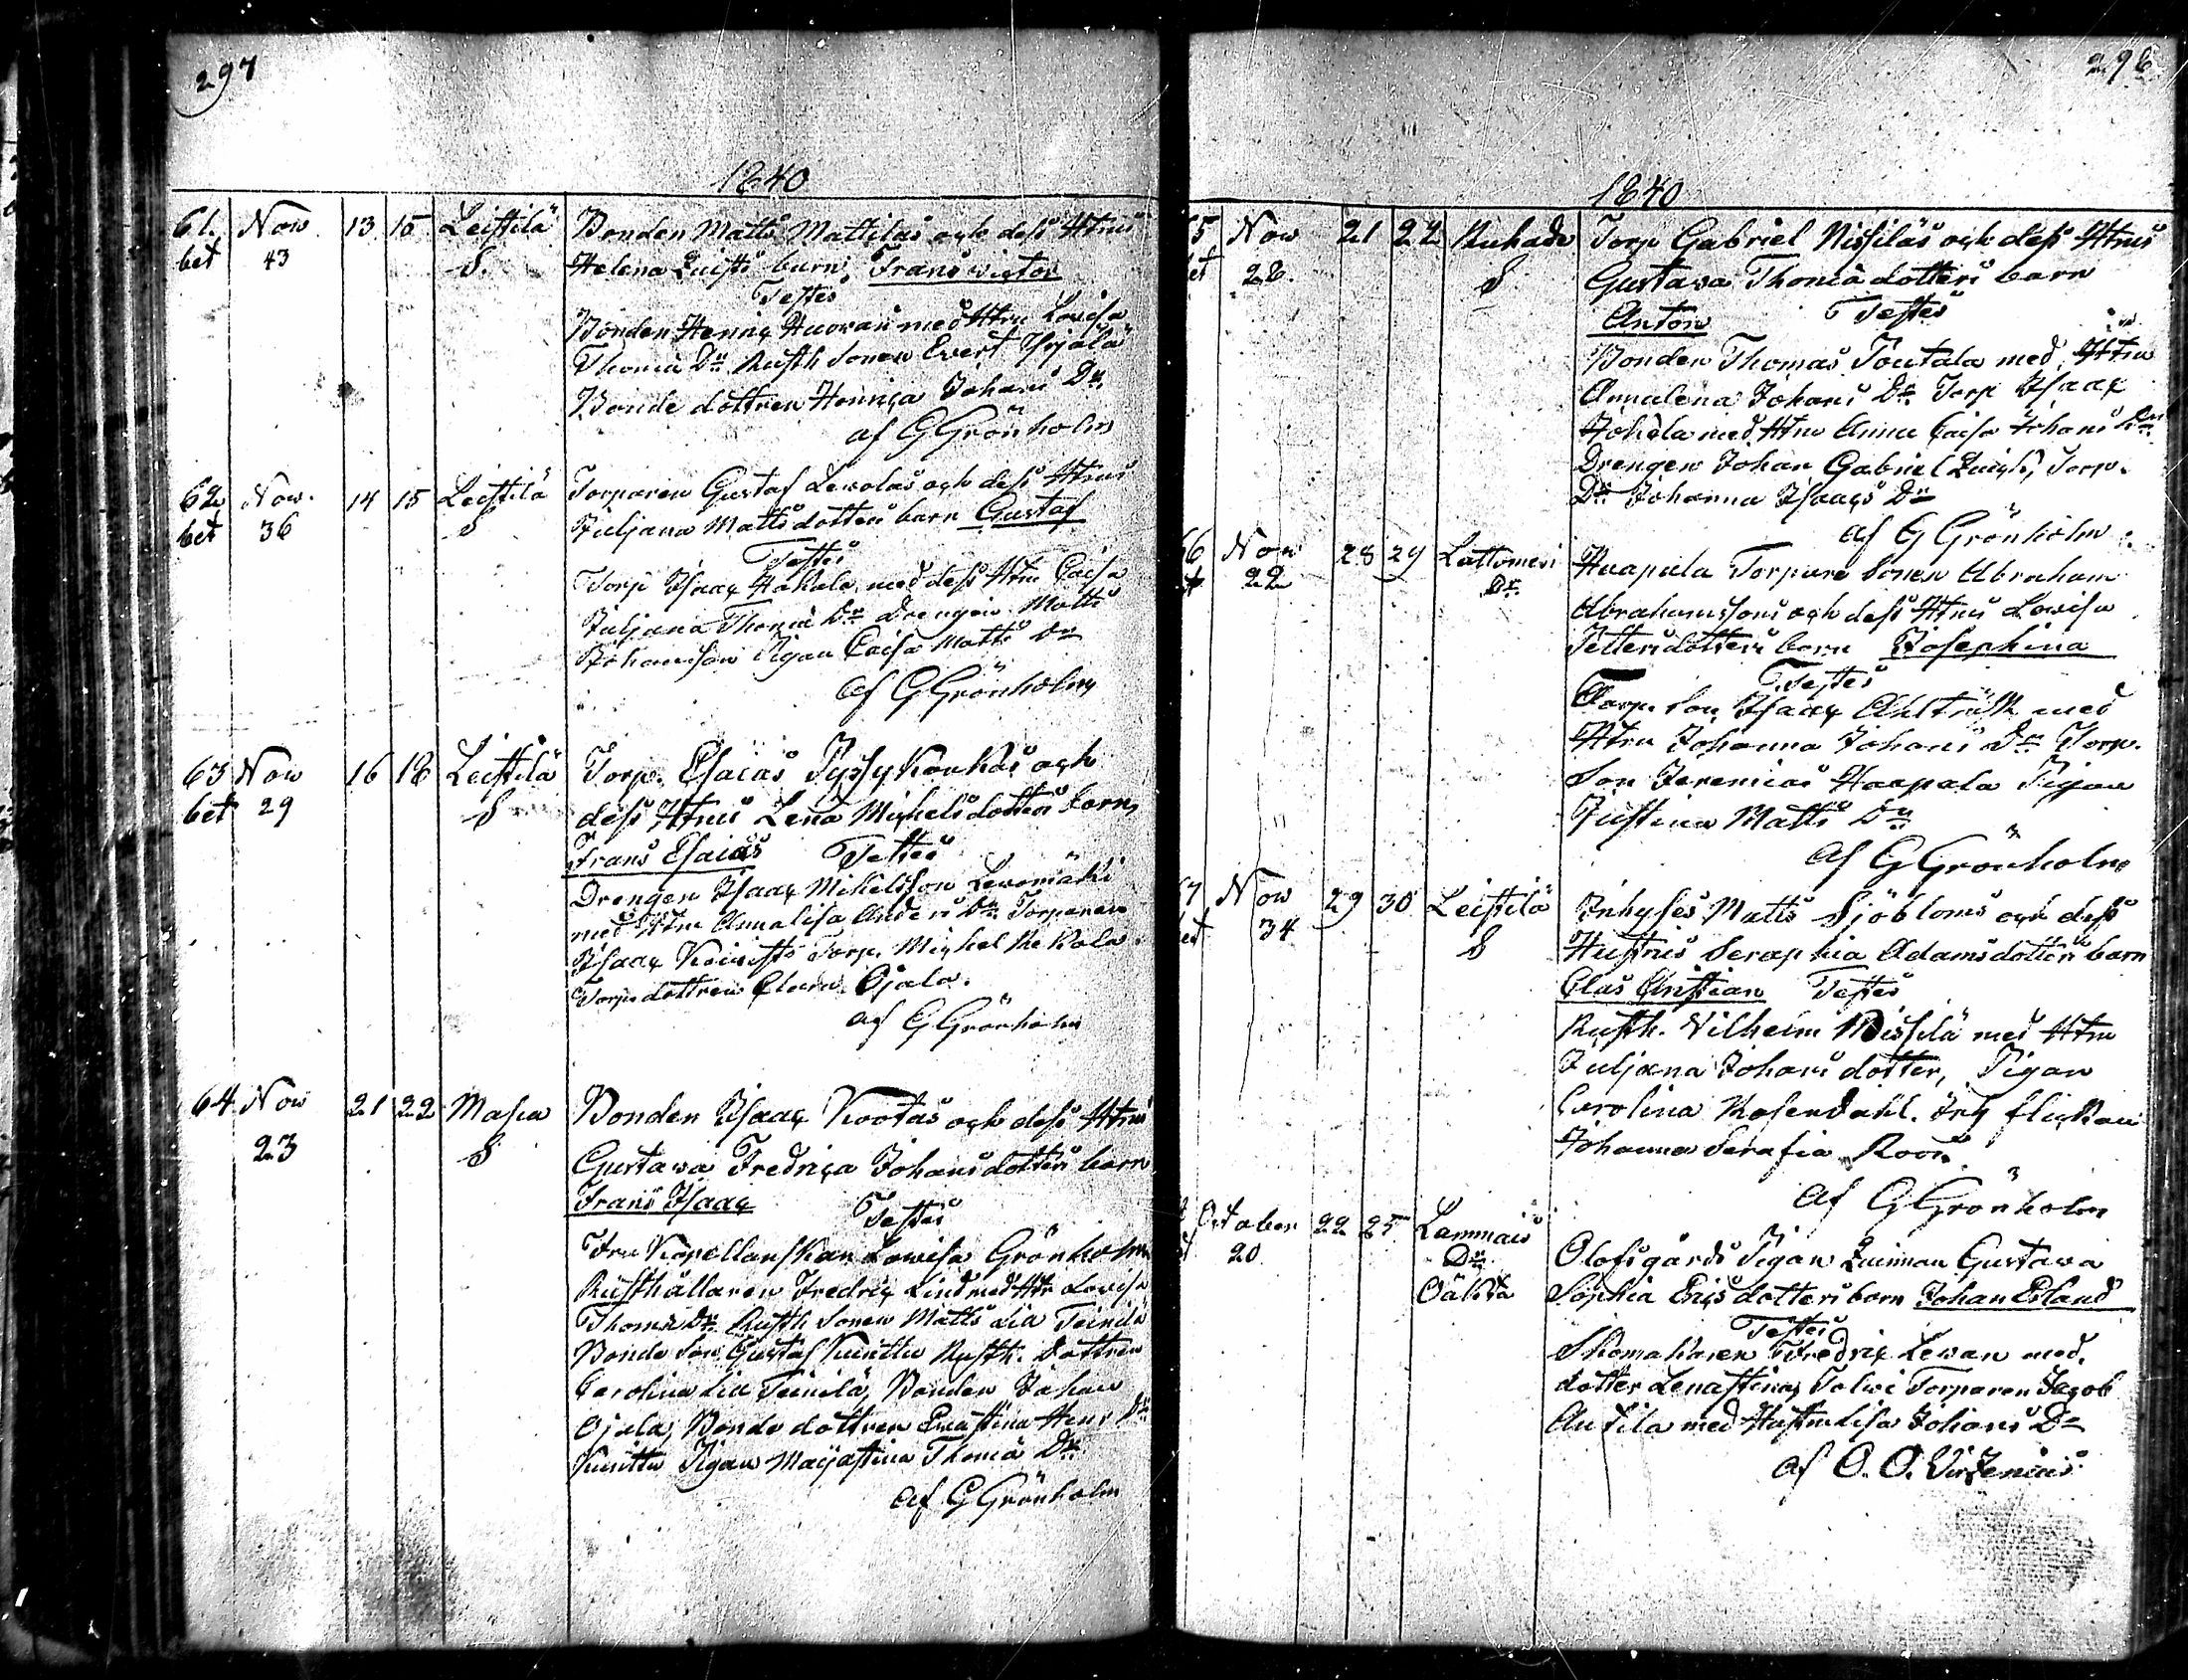 297
1840
61. Nov. 13 15 Leistilä Bonden Matts Mattilas och dess Htrus
bet 43 S. Helena Luists barn, Frans victor
Testes
Bonden Henric Huovari med Htru Lovisa
Thomæ Dr Rusth Sonen Evert Yrjälä
Bonde dottren Henrica Johans Dr
af G Grönholm
62 Nov. 14 15 Leistilä Torparen Gustaf Levolas och dess Htrus
bet 36 S Juljana Matts dotters barn Gustaf
Testes
Torp Isaac Hakala med dess Htru Caisa
Juljana Thomæ Dr Drengen Matts
Johansson Pigan Caisa Matts Dr
af G Grönholm
63 Nov 16 18 Leistilä Torp. Esaias Pyssykankas och
bet 29 S dess Htrus Lena Michelsdotters barn,
Frans Esaias Testes
Drengen Isaac Mikelsson Levomäki
med Htru Annalisa Anders Dr Torparen
Isaac Torp. Michel Kekola
Torpdottren Ojala.
af G Grönholm
64 Nov 21 22 Masia Bonden Isaac Kootas och dess Htrus
23 S Gustava Fredrica Johansdotters barn
Frans Isaac Testes
Fru Kapellanskan Lovisa Grönholm
Rusthållaren Fredric Lind med Htr Lovisa
Thomæ Dr Rusth Sonen Matts Lill Teinilä
Bonde Son Gustaf Kurittu Rusth. Dottren
Carolina Lill Teinilä, Bonden Johan
Ojala, Bonde dottren Evastina Henr Dr
Kurittu Pigan Majastina Thomæ Dr
af G Grönholm
296
1840
5 Nov 21 22 Ruhade Torp Gabriel Nissiläs och dess Htrus
et 28. S Gustava Thomæ dotters barn
Anton Testes
Bonden Thomas Toutala med Htru
Annalena Johans Dr Torp Isaac
Johela med Htru Anna Caisa Johans Dr
Drengen Johan Gabriel Torp.
Dr Johanna Isaacs Dr
af G Grönholm
66 Nov 28 29 Lattomeri Haapala Torpare Sonen Abraham
22 Dr Abrahamssons och dess Htrus Lovisa
Pettersdotters barn Josephina
Testes
Torp. Son Isaac med
Htru Johanna Johans Dr Torp.
Son Jeremias Haapala Pigan
Justina Matts Dr
af G Grönholm
7 Nov 29 30 Leistilä Inhyses Matts Sjöbloms och dess
et 34 S Hustrus Seraphia Adamsdotters barn
Clas Christian Testes
Rusth. Vilhelm Nissilä med Htru
Juljana Johans dotter, Pigan
Carolina Rosendahl. och flickan
Johanna Serafia Roos
af G Grönholm
October 22 25 Lammais Olofsgårds Pigan Gustava
20 Dr Sophia Ericsdotters barn Johan Erland
Oäkta
Testes
Skomakaren Fredric Levan med
dotter Lenastina, Tolvi Torparen Jacob
Antila med Hustru Lisa Johans Dr
af O. O. Virzenius